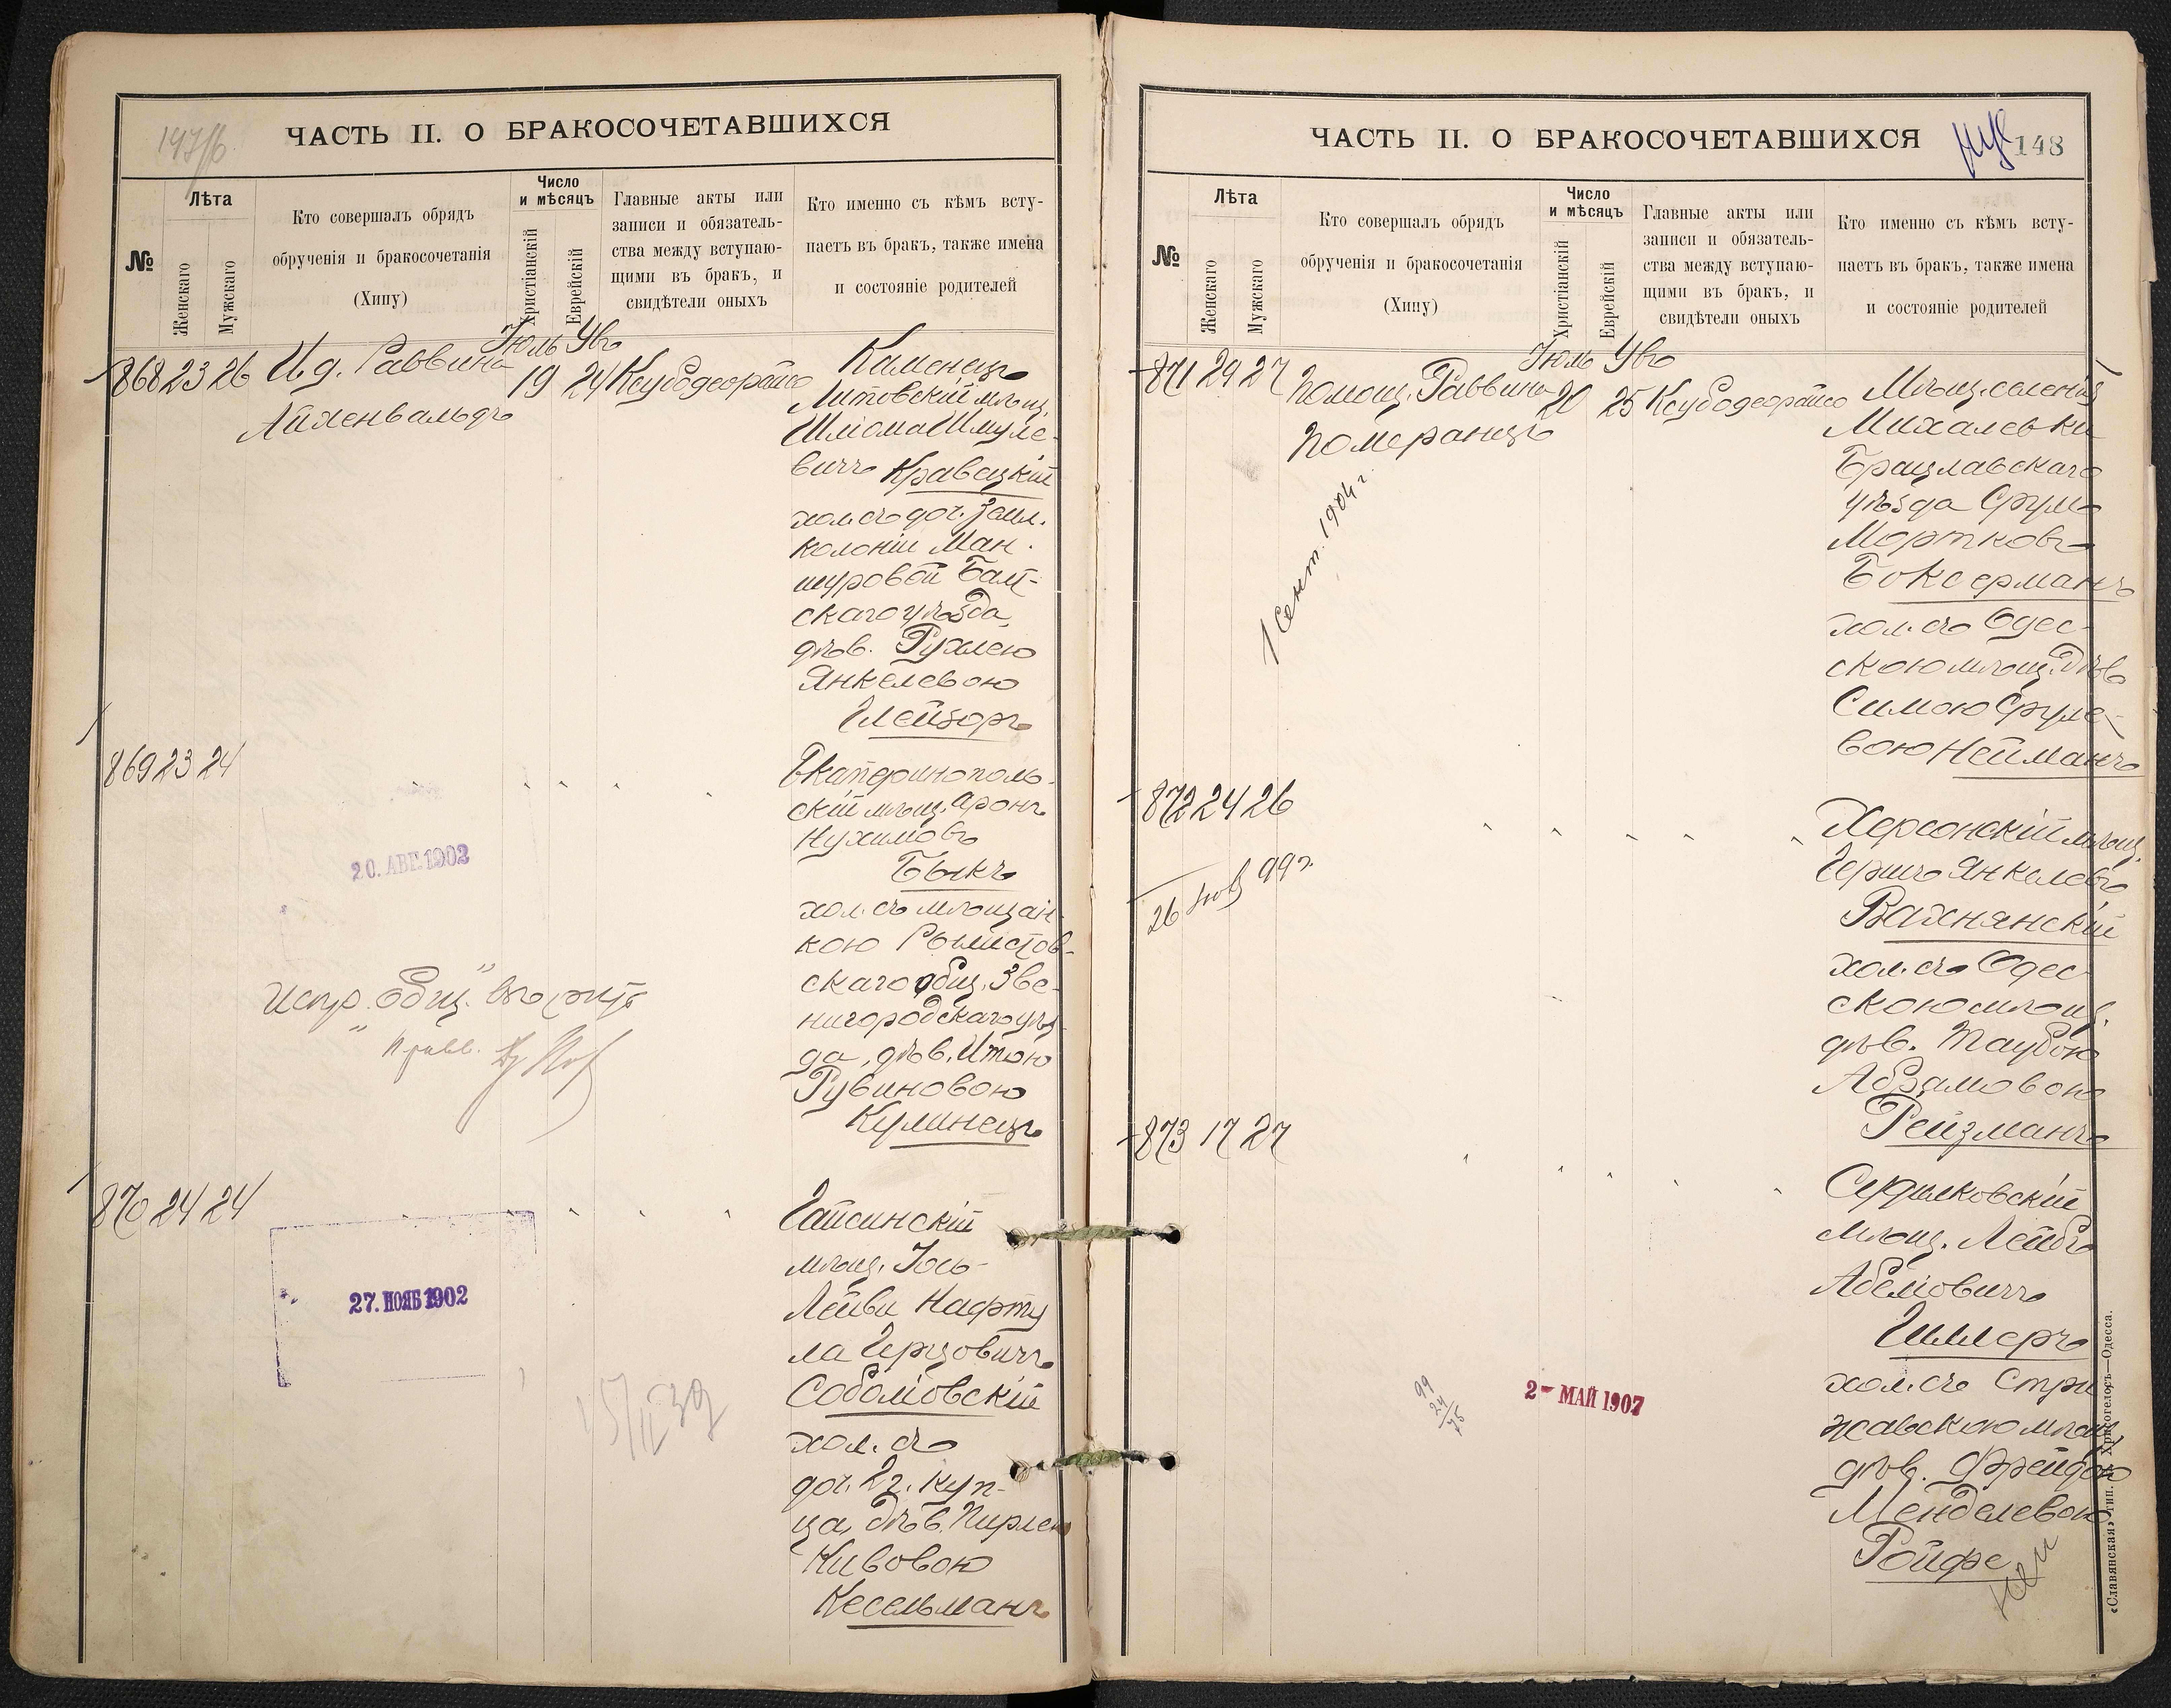 147/б
ЧАСТЬ II. О БРАКОСОЧЕТАВШИХСЯ
№
Лѣта
Женскаго
Мужскаго
Кто совершалъ обрядъ
обрученія и бракосочетанія
(Хипу)
Число
и мѣсяцъ
Христіанскій
Еврейскій
Главные акты или
записи и обязатель-
ства между вступаю-
щими въ бракъ, и
свидѣтели оныхъ
Кто именно съ кѣмъ всту-
паетъ въ бракъ, также имена
и состояніе родителей
Іюль Увъ
868 23 26 И.д. Раввина
Айхенвальдъ
19 24 Ксубодеорайсо
Каменецъ
Литовскій мѣщ.
Шліома Шмуле-
вичъ Кравецкій
хол. съ доч. земл.
колоніи Ман-
шуровой Балт-
скаго уѣзда,
дѣв. Рухлею
Янкелевою
Глейзеръ
869 23 24
Екатеринополь-
скій мѣщ. Аронъ
Нухимовъ
Быкъ
хол. съ мѣщан-
кою
скаго общ. Зве-
нигородскаго уѣз-
да, дѣв. Итою
Рувиновою
Куминецъ
20. АВГ. 1902
Испр. "общ." вѣрить
870 24 24
Гайсинскій
мѣщ. Іось-
Лейви Нафту
ла Герцовичъ
Соболіовскій
хол. съ
доч. 2 г. куп-
ца, дѣв. Пирлею
Кивовою
Кесельманъ
27. НОЯБ 1902
15/II 39
ЧАСТЬ II. О БРАКОСОЧЕТАВШИХСЯ
148
№
Лѣта
Женскаго
Мужскаго
Кто совершалъ обрядъ
обрученія и бракосочетанія
(Хипу)
Число
и мѣсяцъ
Христіанскій
Еврейскій
Главные акты или
записи и обязатель-
ства между вступаю-
щими въ бракъ, и
свидѣтели оныхъ
Кто именно съ кѣмъ всту-
паетъ въ бракъ, также имена
и состояніе родителей
Іюль Увъ
871 29 27 Помощ. Раввина
Померанецъ
20 25 Ксубодеорайсо
Мѣщ. селенія
Михалевки
Брацлавскаго
уѣзда Сруль
Мортковъ
Боксерманъ
хол. съ Одес-
скою мѣщ. дѣв.
Симою Сруле-
вою Нейманъ
1 Сент. 1904 г.
872 24 26
Херсонскій мѣщ.
Гершъ Янкелевъ
Вахнянскій
хол. съ Одес-
скою мѣщ.
дѣв. Таубою
Абрамовою
Рейзманъ
99 г.
873 17 27
Судилковскій
мѣщ. Лейбъ
Абеліовичъ
Гиллеръ
хол. съ Стри
жавскою мѣщ.
дѣв. Фрейдою
Менделевою
Ройфе
99
24/75
2- МАЙ 1907
«Славянская» тип. Н. Хрисогелосъ—Одесса.